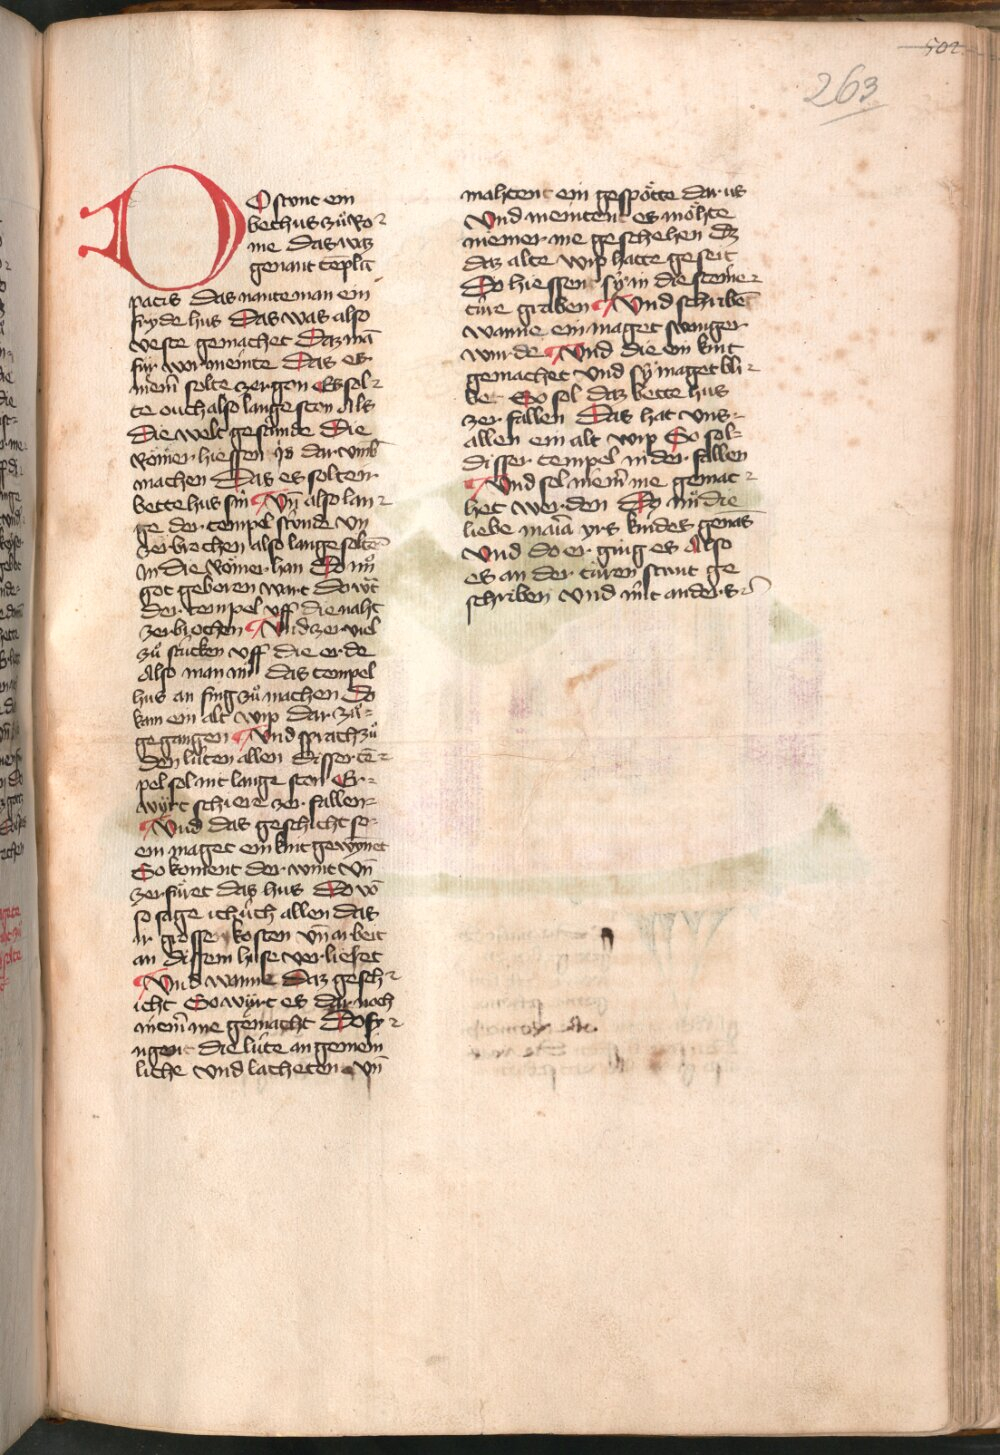 502
263
DO stunt ein
bethus zuͦ Ro⸗
me das waz
genant te̅plu̅
pacis das nante man ein
fryde hus Das was also
veste gemachet Daz ma̅
für wor meinte Das es
niem̅ solte zergon Es sol⸗
te ouch also lange ston Als
Die welt gestünde Die
Römer hiessen is dar vmb
machen Das es solte ir
bette hus sin Vn̅ also lan⸗
ge der tempel stunde vn
zerbrochen also lange solte̅
in die Römer han Do nuͦ
got geboren wart do wͦt
der tempel vff die naht
zerbrochen Vnd zer viel
zuͦ stücken vff die erde
Also man nuͦ das tempel
hus an fing zuͦ machen Do
kam ein alt wip dar zuͦ⸗
gegangen Vnd sprach zuͦ
den lüten allen Disser te̅⸗
pel sol nit lange ston Er⸗
wyrt schiere zer fallen⸗
Vnd das geschicht so⸗
ein maget ein kint gewynnet
So koment der wint Vn̅
zerfüret das hus Do vo̅
so sage ich üch allen das
ir grossen kosten vn̅ arbeit
an dissem huse verlieset
Vnd wanne Daz gesch⸗
icht So wyrt es dar noch
niem̅ me gemacht Do fy⸗
ngent die lüte an gemein
liche vnd lacheten vn̅
mahtent ein gespötte dar us
Vnd meintent es möhte
niemer me geschehen dz
daz alte wip hatte geseit
Do hiessent sy in die steine⸗
türe graben Vnd schribe̅
wanne ein maget swanger
wurde Vnd die ein kint
gemachet Vnd sy maget bli⸗
be So sol daz bette hus
zer fallen Das hat vns⸗
allen ein alt wip So sol⸗
disser tempel nider fallen
Vnd sol niem̅ me gemac⸗
het werden Do nuͦ die
liebe maria yrs kindes genas
Vnd do er ging es Also
es an der türen stunt ge
schriben vnd nit anders